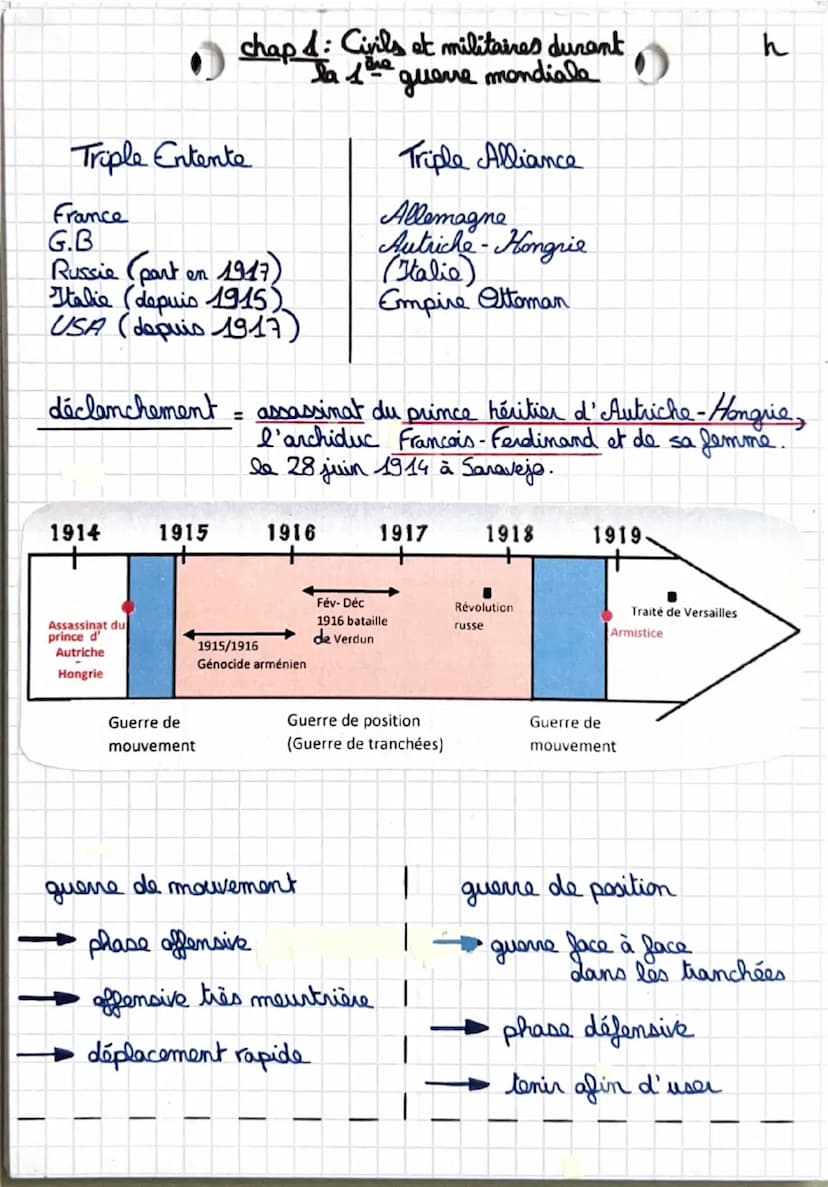 chap 1 : Civils et militaires durant
la 1ère guerre mondiale
h
Triple Entente
France
G.B
Russie (part en 1917)
Italie (depuis 1915)
USA (depuis 1917)
Triple Alliance
Allemagne
Autriche-Hongrie
(Italie)
Empire Ottoman
déclanchement = assassinat du prince héritier d'Autriche-Hongrie,
l'archiduc François-Ferdinand et de sa femme.
le 28 juin 1914 à Saravejo.
1914 1915 1916 1917 1918 1919
Assassinat du
prince d'
Autriche
-
Hongrie
1915/1916
Génocide arménien
Fév- Déc
1916 bataille
de Verdun
Révolution
russe
Armistice
Traité de Versailles
Guerre de
mouvement
Guerre de position
(Guerre de tranchées)
Guerre de
mouvement
guerre de mouvement
→ phase offensive
→ offensive très meurtrière
→ déplacement rapide
guerre de position
→ guerre face à face
dans les tranchées
→ phase défensive
→ tenir afin d'user